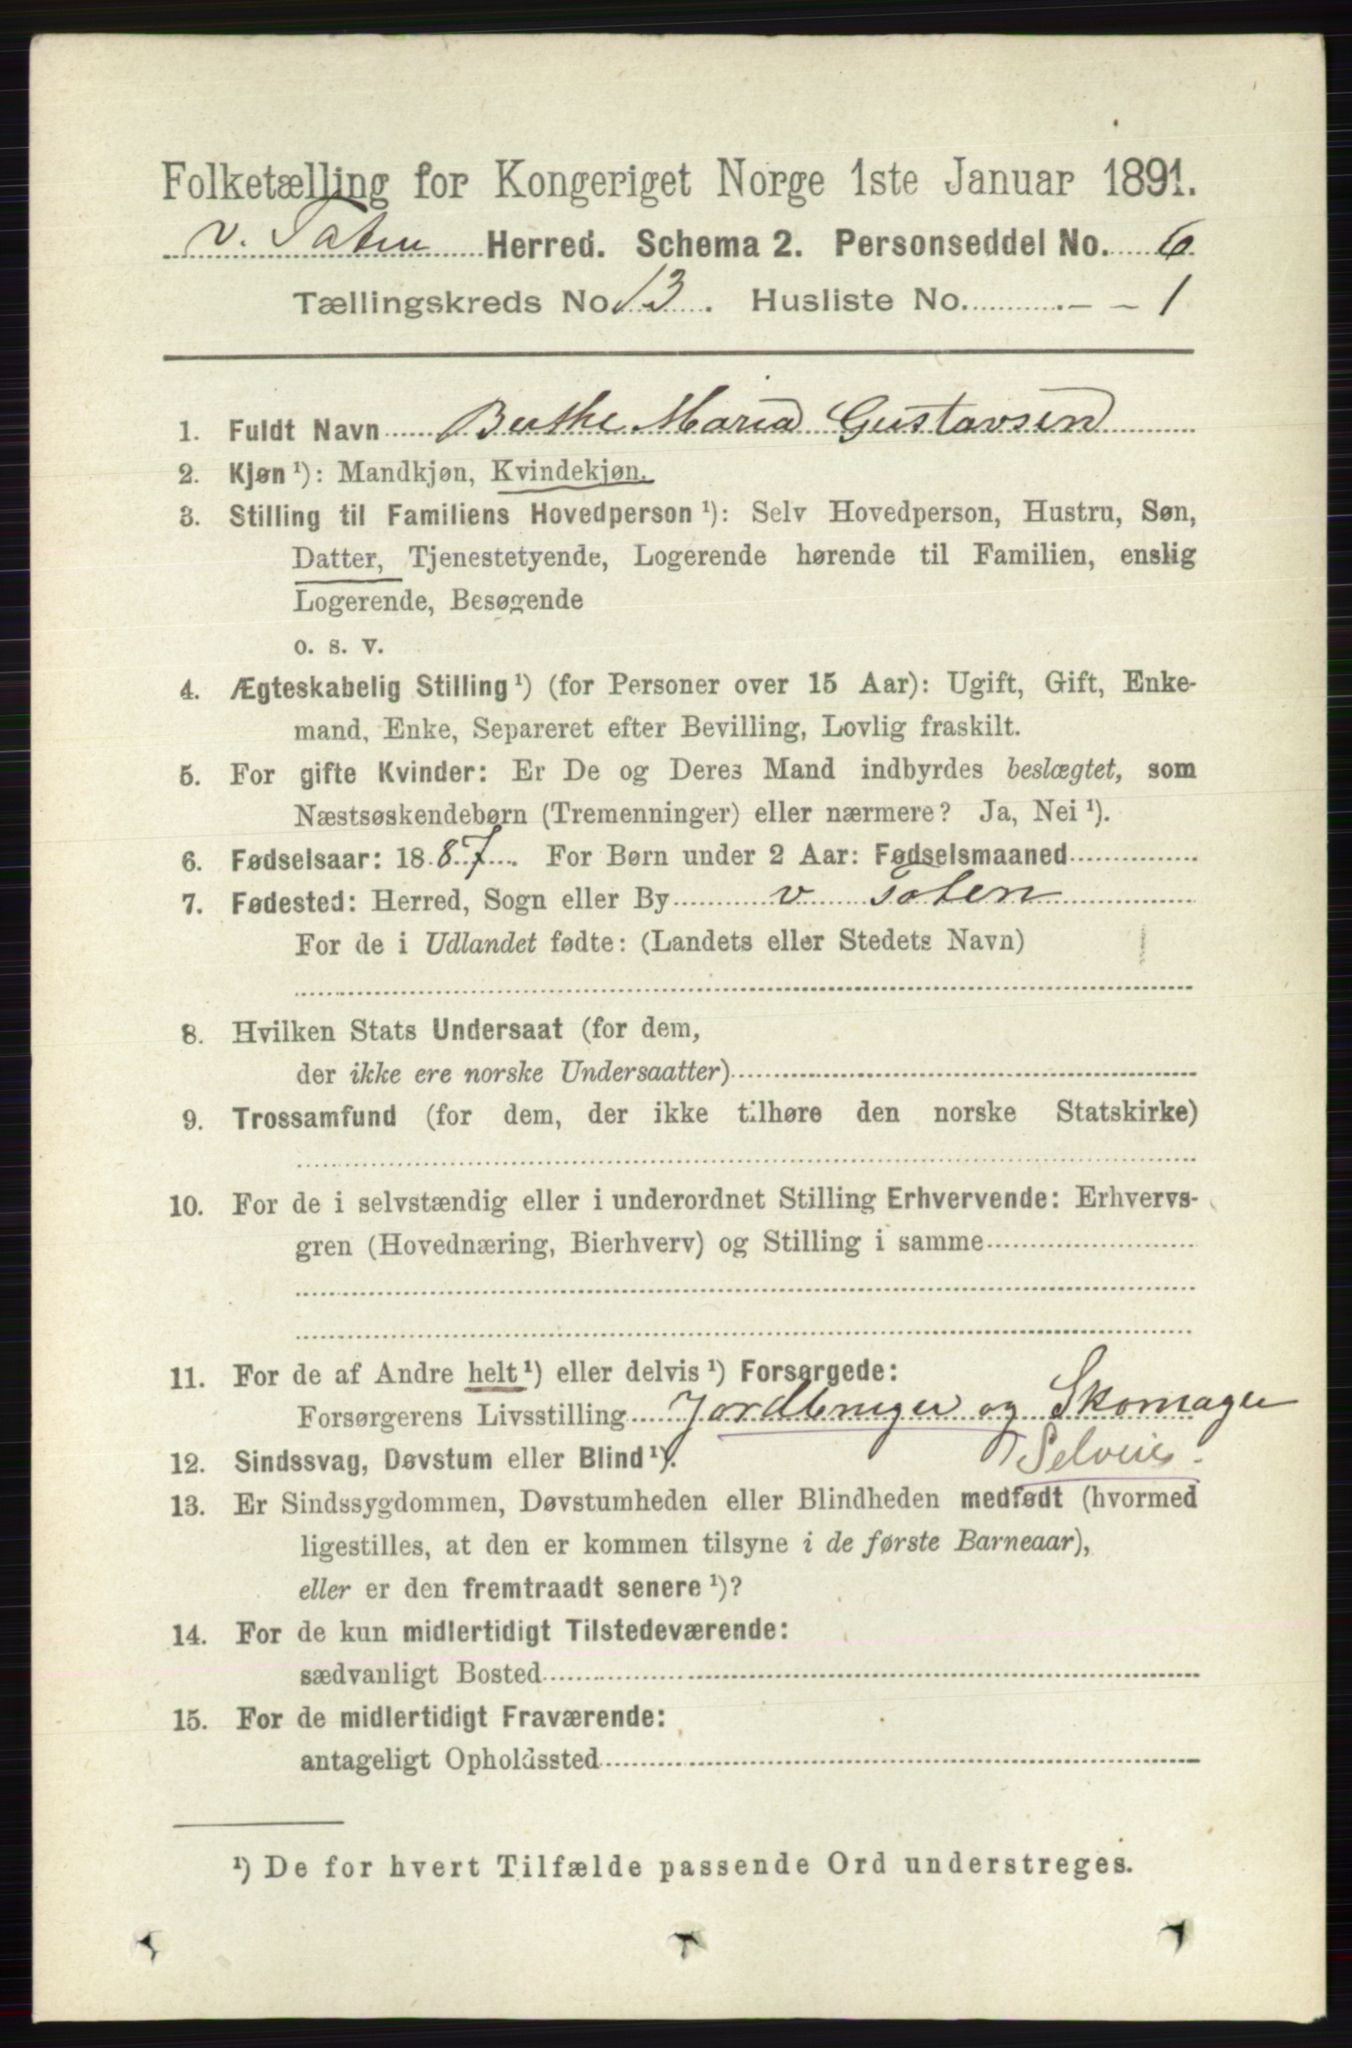 Folketælling for Kongeriget Norge 1ste Januar 1891.
v. Toten Herred. Schema 2. Personseddel No. 6
Tællingskreds No. 13. Husliste No. - - 1
1. Fuldt Navn Berthe Maria Gustavsen
2. Kjøn ¹): Mandkjøn, Kvindekjøn.
3. Stilling til Familiens Hovedperson ¹): Selv Hovedperson, Hustru, Søn,
Datter, Tjenestetyende, Logerende hørende til Familien, enslig
Logerende, Besøgende
o. s. v.
4. Ægteskabelig Stilling ¹) (for Personer over 15 Aar): Ugift, Gift, Enke-
mand, Enke, Separeret efter Bevilling, Lovlig fraskilt.
5. For gifte Kvinder: Er De og Deres Mand indbyrdes beslægtet, som
Næstsøskendebørn (Tremenninger) eller nærmere? Ja, Nei ¹).
6. Fødselsaar: 1887. For Børn under 2 Aar: Fødselsmaaned
7. Fødested: Herred, Sogn eller By v Toten
For de i Udlandet fødte: (Landets eller Stedets Navn)
8. Hvilken Stats Undersaat (for dem,
der ikke ere norske Undersaatter)
9. Trossamfund (for dem, der ikke tilhøre den norske Statskirke)
10. For de i selvstændig eller i underordnet Stilling Erhvervende: Erhvervs-
gren (Hovednæring, Bierhverv) og Stilling i samme
11. For de af Andre helt ¹) eller delvis ¹) Forsørgede:
Forsørgerens Livsstilling Jordbruger og Skomager
12. Sindssvag, Døvstum eller Blind ¹). Selveier
13. Er Sindssygdommen, Døvstumheden eller Blindheden medfødt (hvormed
ligestilles, at den er kommen tilsyne i de første Barneaar),
eller er den fremtraadt senere ¹)?
14. For de kun midlertidigt Tilstedeværende:
sædvanligt Bosted
15. For de midlertidigt Fraværende:
antageligt Opholdssted
¹) De for hvert Tilfælde passende Ord understreges.